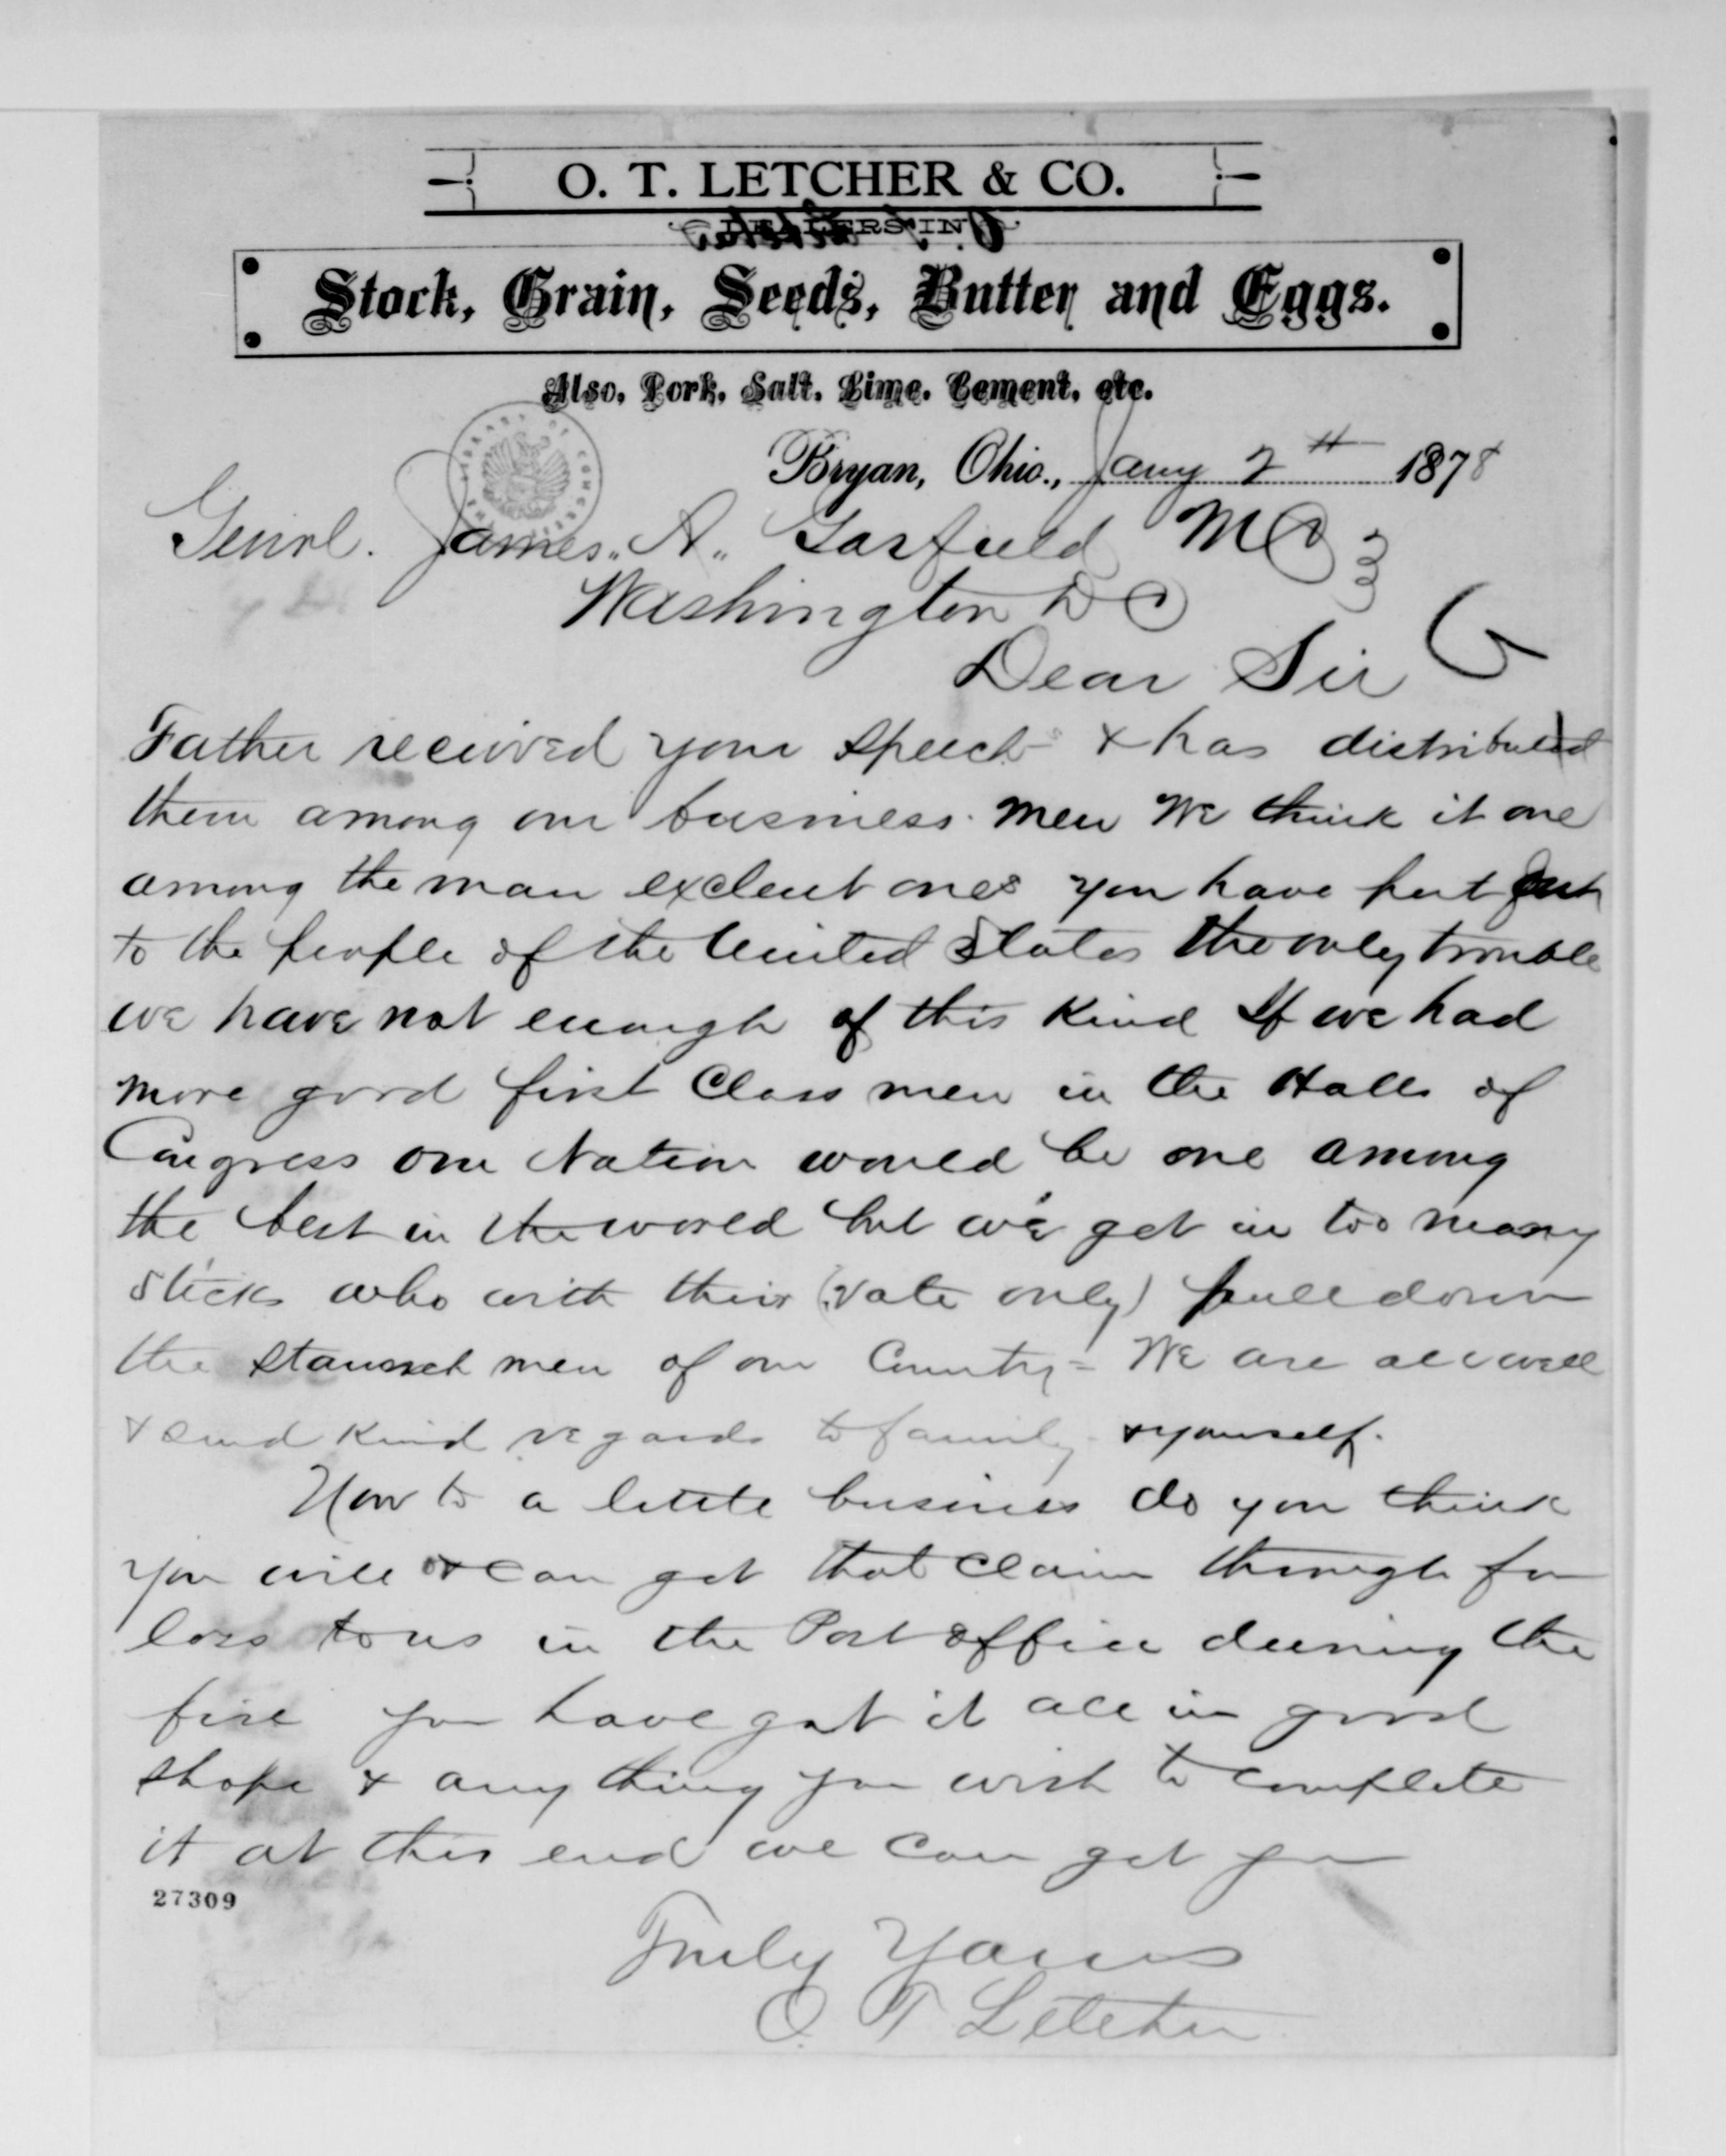 O. T. LETCHER & CO.
DEALERS IN
Stock, Grain, Seeds, Butter and Eggs.
Also, Pork, Salt, Lime, Cement, etc.
Bryan, Ohio., Jany 2th 1878
Genrl. James. A. Garfield M C
Washington D C
Dear Sir
Father received your speech & has distributed
them among our business men We think it one
among the man exclent ones you have put forth
to the people of the United States the only trouble
we have not enough of this kind If we had
more good first Class men in the Halls of
Congress our Nation would be one among
the best in the world but we get in too many
sticks who with their (vote only) pull down
the staunch men of our Country = We are all well
& send kind regards to family & yourself.
Now to a little business do you think
you will or can get that claim through for
loss to us in the Post office during the
fire you have got it all in good
shape & any thing you wish to complete
it at this end we can get you
27309
Truly Yours
O T Letcher